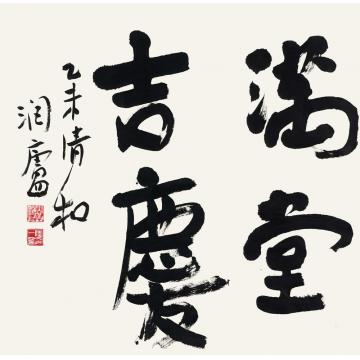 满堂
吉慶
乙未清和
润廬